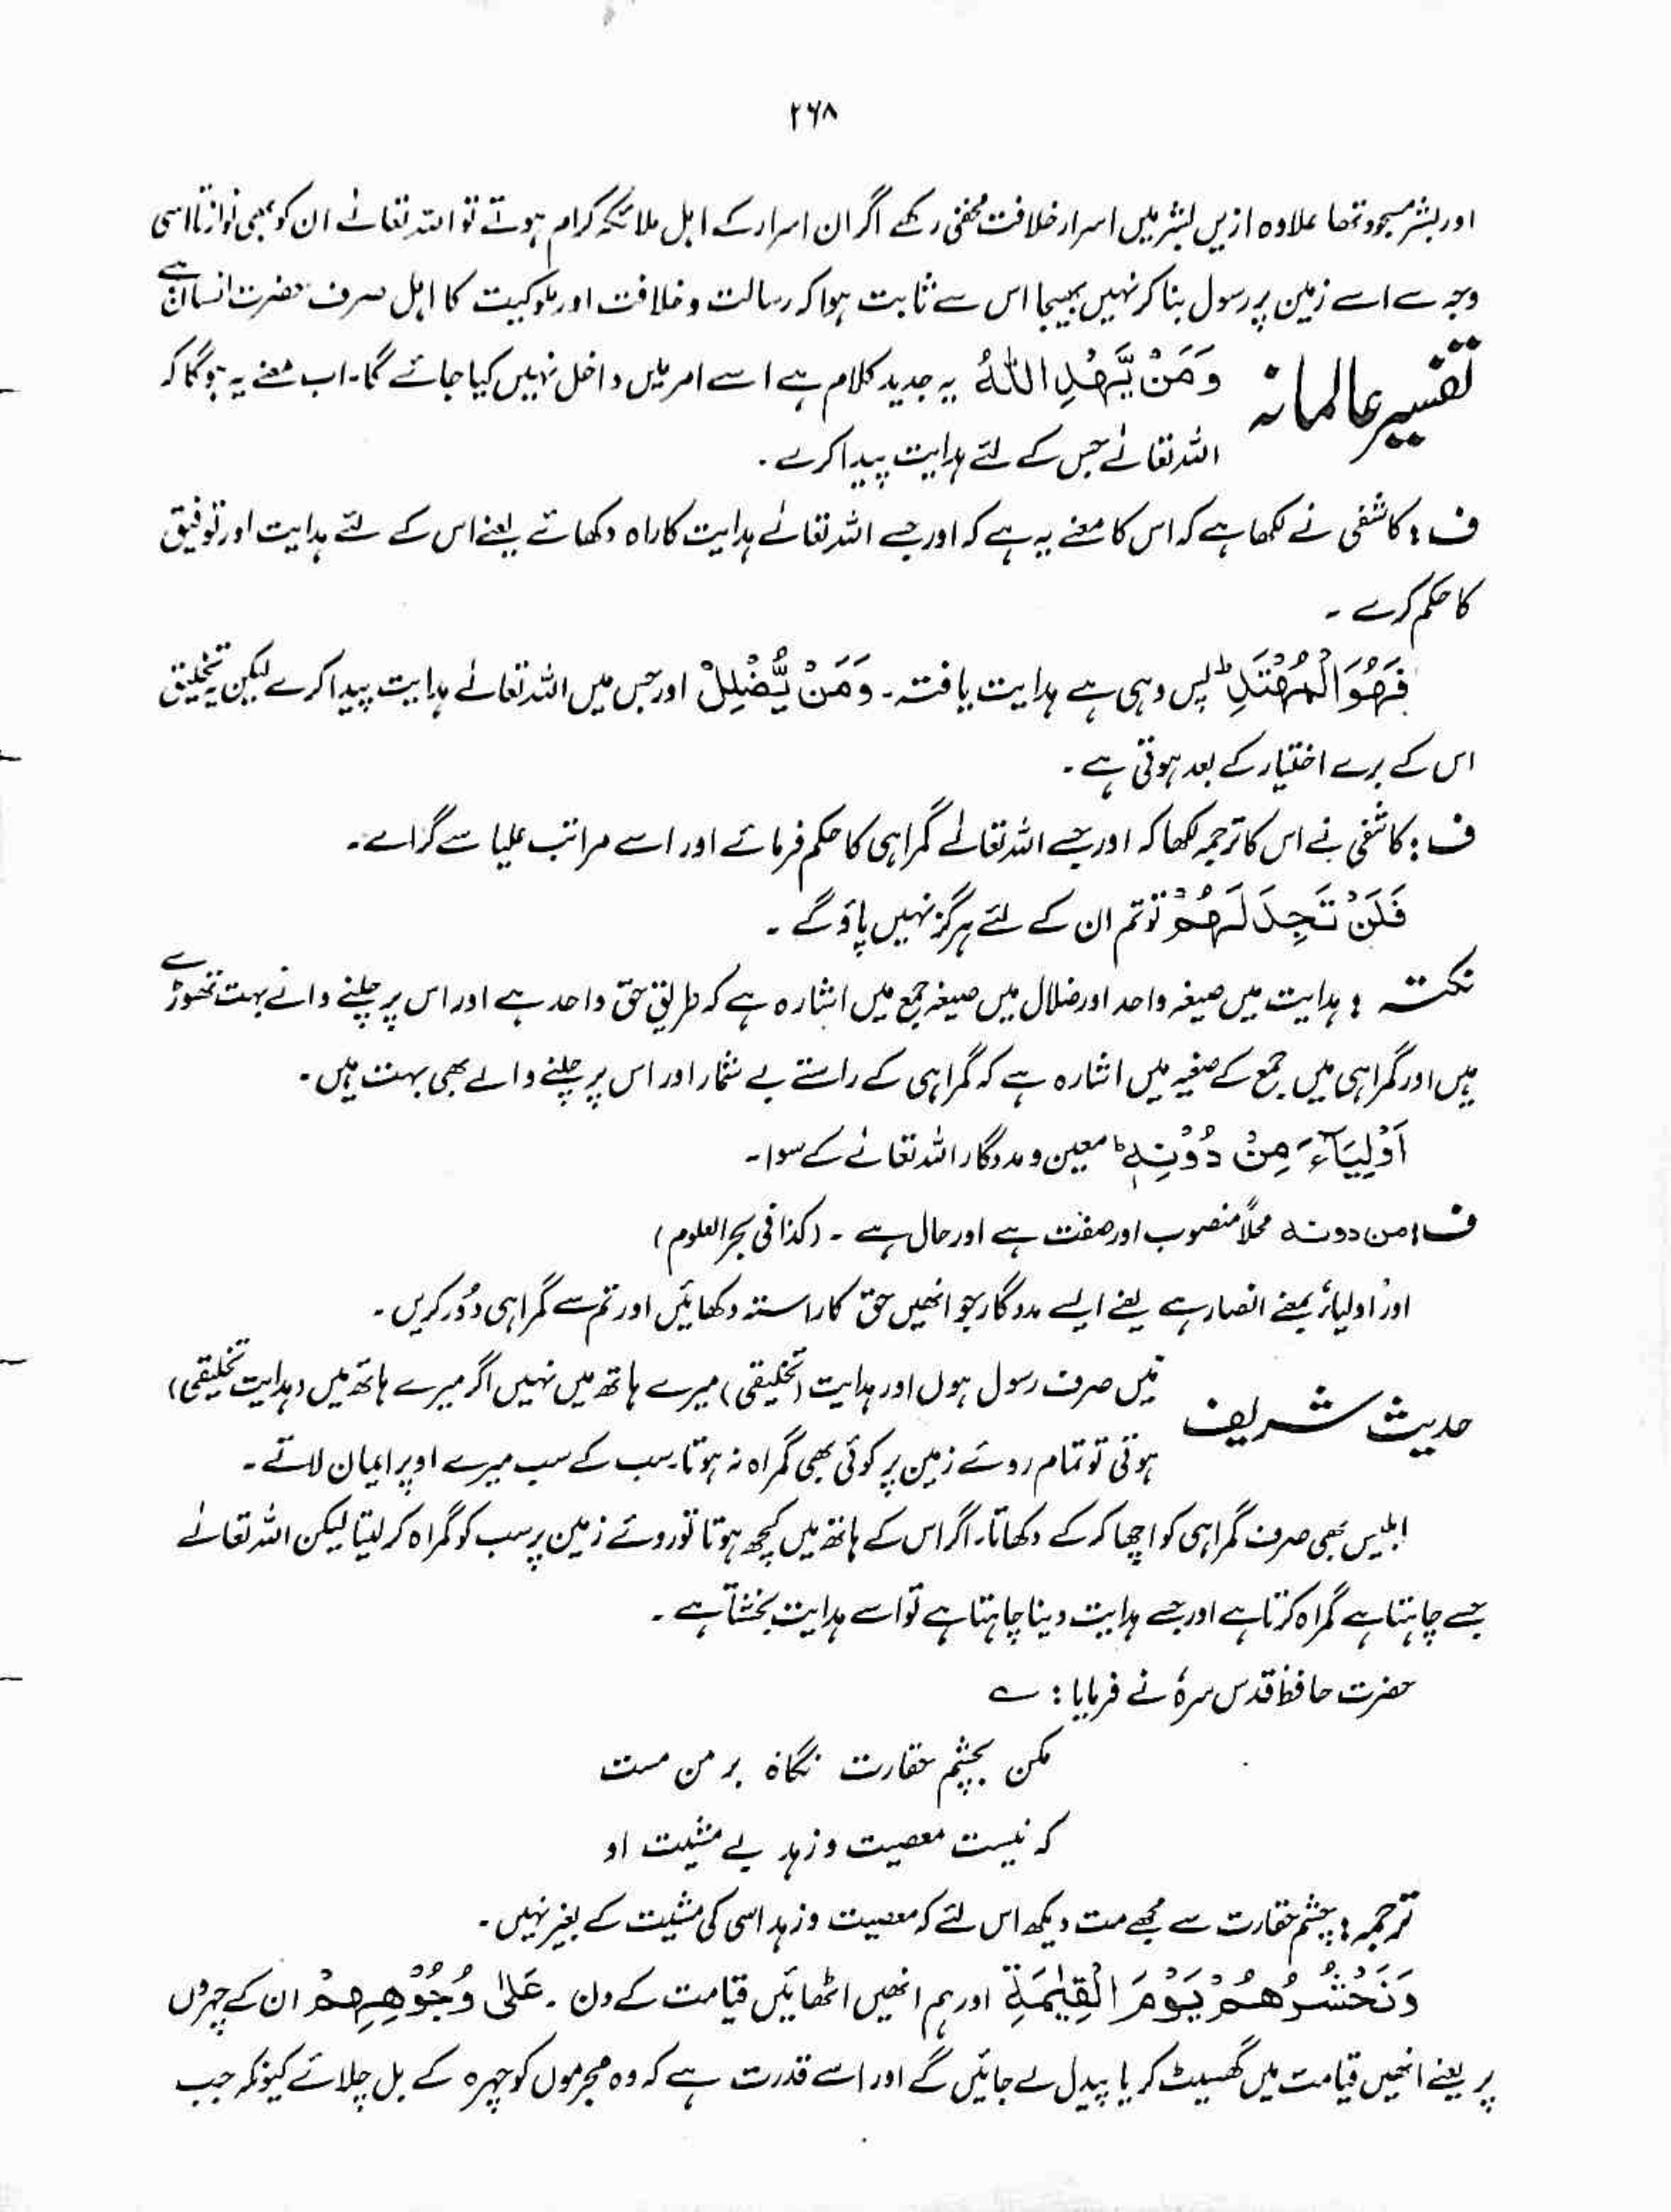 ۲۶۸
اور بشر مسجود تھا علاوہ ازیں بشر میں اسرار خلافت مخفی رکھے اگر ان اسرار کے اہل ملائکہ کرام ہوتے تو اللہ تعالٰے ان کو بھی نوازتا اسی
وجہ سے اسے زمین پر رسول بنا کر نہیں بھیجا اس سے ثابت ہوا کہ رسالت و خلافت اور ملوکیت کا اہل صرف حضرت انسان ہے
تفسیر عالمانہ وَمَنْ یَّهْدِ اللّٰهُ یہ جدید کلام ہے اسے امر میں داخل نہیں کیا جائے گا۔ اب معنے یہ ہوگا کہ
اللہ تعالٰے جس کے لئے ہدایت پیدا کرے۔
ف : کاشفی نے لکھا ہے کہ اس کا معنے یہ ہے کہ اور جسے اللہ تعالٰے ہدایت کا راہ دکھاتے یعنے اس کے لئے ہدایت اور توفیق
کا حکم کرے ۔
فَهُوَ الْمُهْتَدِ ۚ پس وہی ہے ہدایت یافتہ ۔ وَمَنْ یُّضْلِلْ اور جس میں اللہ تعالٰے ہدایت پیدا کرے لیکن یہ تخلیق
اس کے برے اختیار کے بعد ہوتی ہے ۔
ف : کاشفی نے اس کا ترجمہ لکھا کہ اور جسے اللہ تعالٰے گمراہی کا حکم فرمائے اور اسے مراتب علیا سے گرائے۔
فَلَنْ تَجِدَ لَهُمْ تو تم ان کے لئے ہرگز نہیں پاؤ گے ۔
نکتہ : ہدایت میں صیغہ واحد اور ضلال میں صیغہ جمع میں اشارہ ہے کہ طریق حق واحد ہے اور اس پر چلنے والے بہت تھوڑے
ہیں اور گمراہی میں جمع کے صغیہ میں اشارہ ہے کہ گمراہی کے راستے بے شمار اور اس پر چلنے والے بھی بہت ہیں ۔
اَوْلِیَآءَ مِنْ دُوْنِهٖ ؕ معین و مددگار اللہ تعالٰے کے سوا ۔
ف : من دونه محلاً منصوب اور صفت ہے اور حال ہے ۔ (کذا فی بحر العلوم)
اور اولیاء بمعنے انصار ہے یعنے ایسے مددگار جو انھیں حق کا راستہ دکھائیں اور تم سے گمراہی دُور کریں ۔
حدیث شریف میں صرف رسول ہوں اور ہدایت (تخلیقی) میرے ہاتھ میں نہیں اگر میرے ہاتھ میں (ہدایت تخلیقی)
ہوتی تو تمام روئے زمین پر کوئی بھی گمراہ نہ ہوتا سب کے سب میرے اوپر ایمان لاتے ۔
ابلیس بھی صرف گمراہی کو اچھا کر کے دکھاتا۔ اگر اس کے ہاتھ میں کچھ ہوتا تو روئے زمین پر سب کو گمراہ کر لیتا لیکن اللہ تعالٰے
جسے چاہتا ہے گمراہ کرتا ہے اور جسے ہدایت دینا چاہتا ہے تو اسے ہدایت بخشتا ہے ۔
حضرت حافظ قدس سرہٗ نے فرمایا : ؎
مکن بچشم حقارت نگاہ بر من مست
کہ نیست معصیت و زہد بے مشیت او
ترجمہ : چشم حقارت سے مجھے مت دیکھ اس لئے کہ معصیت و زہد اسی کی مشیت کے بغیر نہیں ۔
وَنَحْشُرُهُمْ یَوْمَ الْقِیٰمَةِ اور ہم انھیں اٹھائیں قیامت کے دن ۔ عَلٰی وُجُوْهِهِمْ ان کے چہروں
پر یعنے انھیں قیامت میں گھسیٹ کر یا پیدل لے جائیں گے اور اسے قدرت ہے کہ وہ مجرموں کو چہرہ کے بل چلائے کیونکہ جب